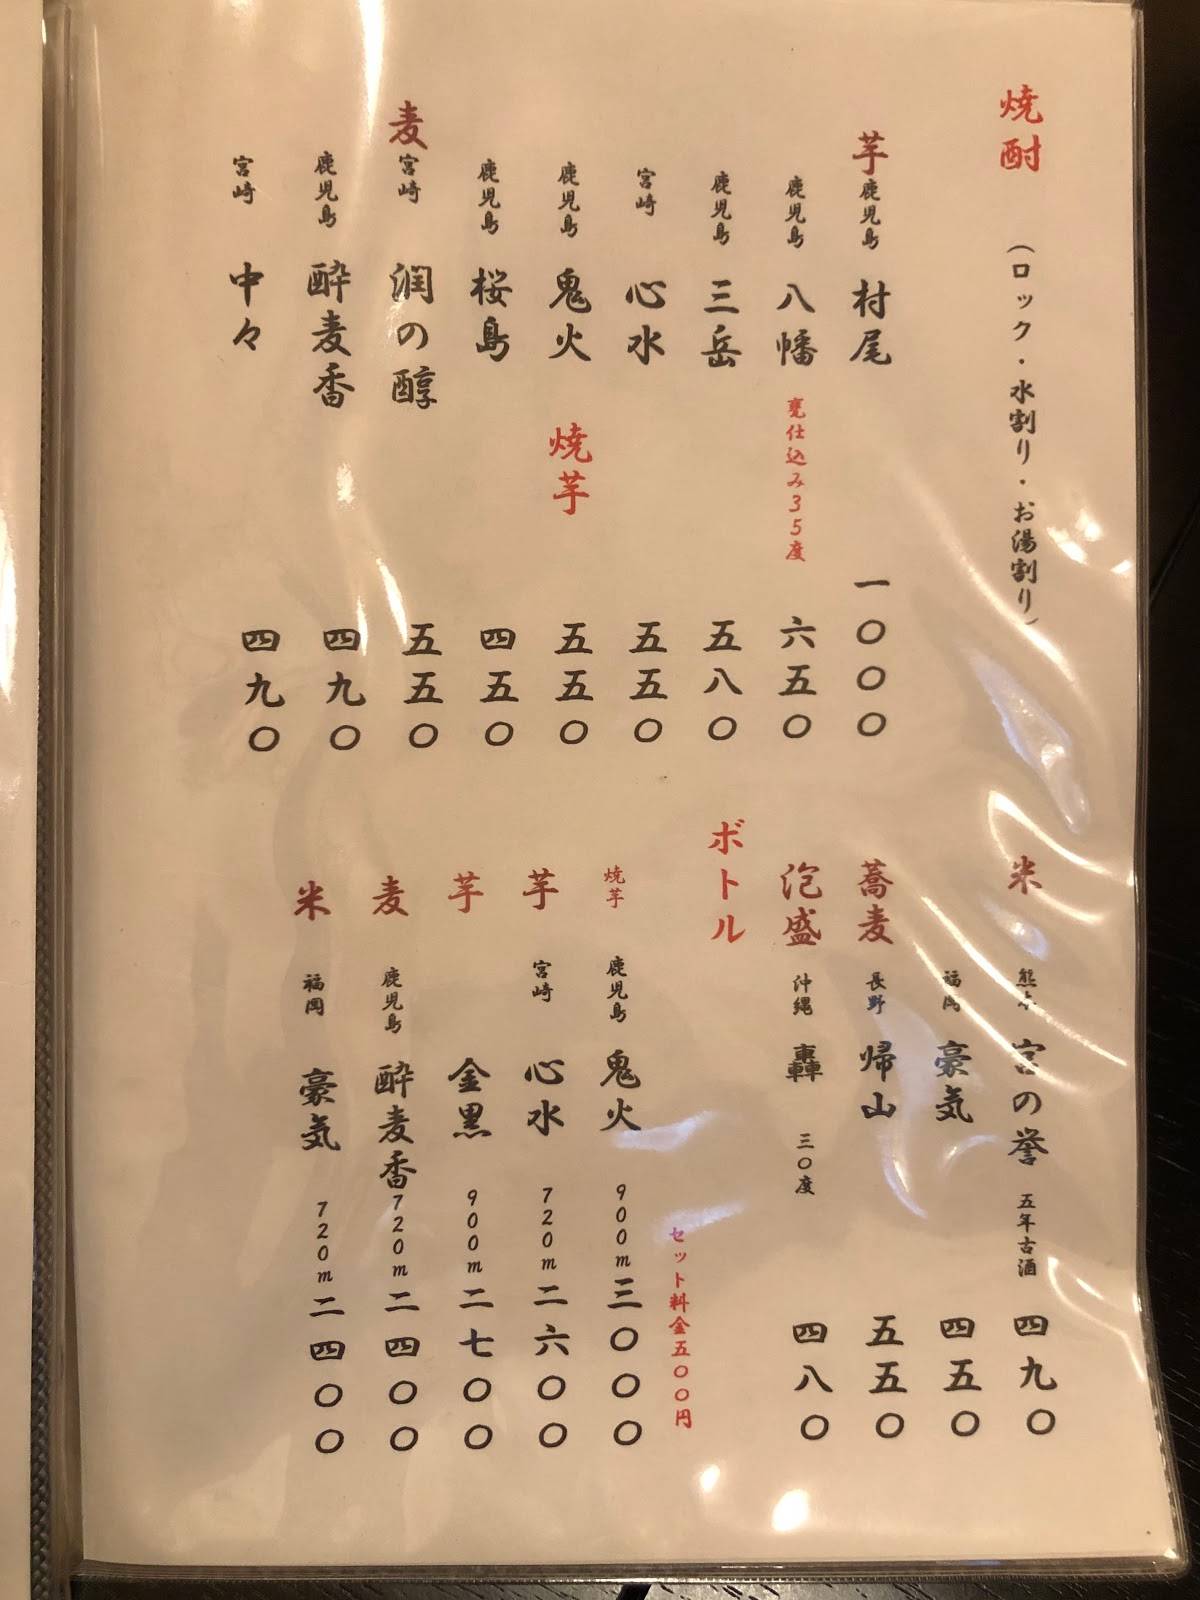 焼酎 (ロック・水割り・お湯割り)
芋 鹿児島 村尾 一〇〇〇
鹿児島 八幡 甕仕込み35度 六五〇
鹿児島 三岳 五八〇
宮崎 心水 五五〇
鹿児島 鬼火 焼芋 五五〇
鹿児島 桜島 四五〇
麦 宮崎 潤の醇 五五〇
鹿児島 酔麦香 四九〇
宮崎 中々 四九〇
米 熊本 宮の誉 五年古酒 四九〇
福岡 豪気 四五〇
蕎麦 長野 帰山 五五〇
泡盛 沖縄 轟 三〇度 四八〇
ボトル
セット料金五〇〇円
焼芋 鹿児島 鬼火 900m 三〇〇〇
芋 宮崎 心水 720m 二六〇〇
芋 金黒 900m 二七〇〇
麦 鹿児島 酔麦香 720m 二四〇〇
米 福岡 豪気 720m 二四〇〇